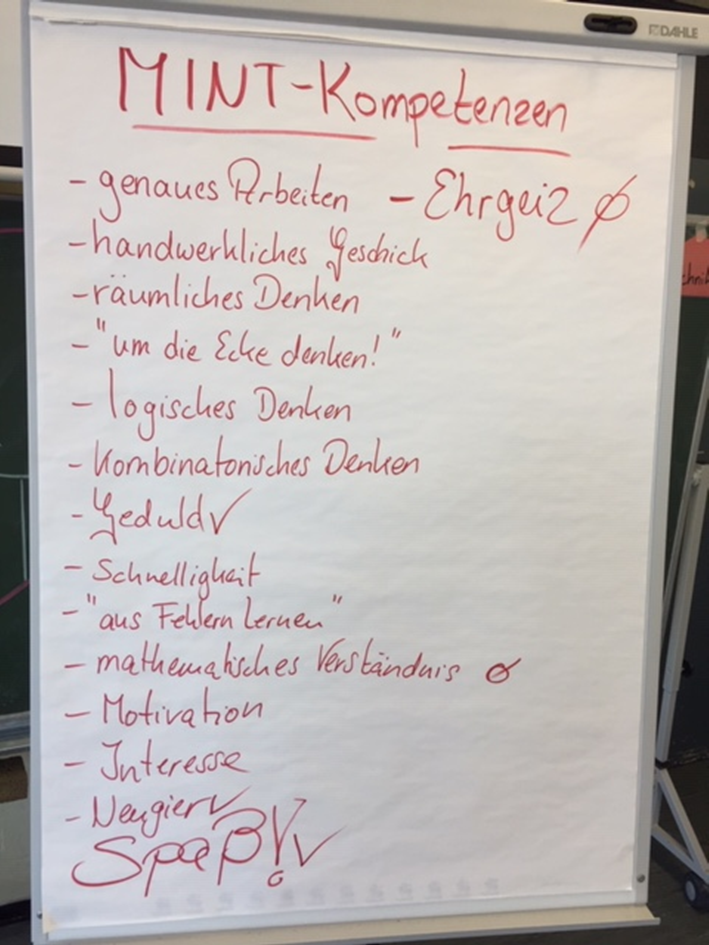 DAHLE
MINT-Kompetenzen
- genaues Arbeiten - Ehrgeiz ∅
- handwerkliches Geschick
- räumliches Denken
- "um die Ecke denken!"
- logisches Denken
- Kombinatorisches Denken
- Geduld ✓
- Schnelligkeit
- "aus Fehlern lernen"
- mathematisches Verständnis ∅
- Motivation
- Interesse
- Neugier ✓
Spaß! ✓